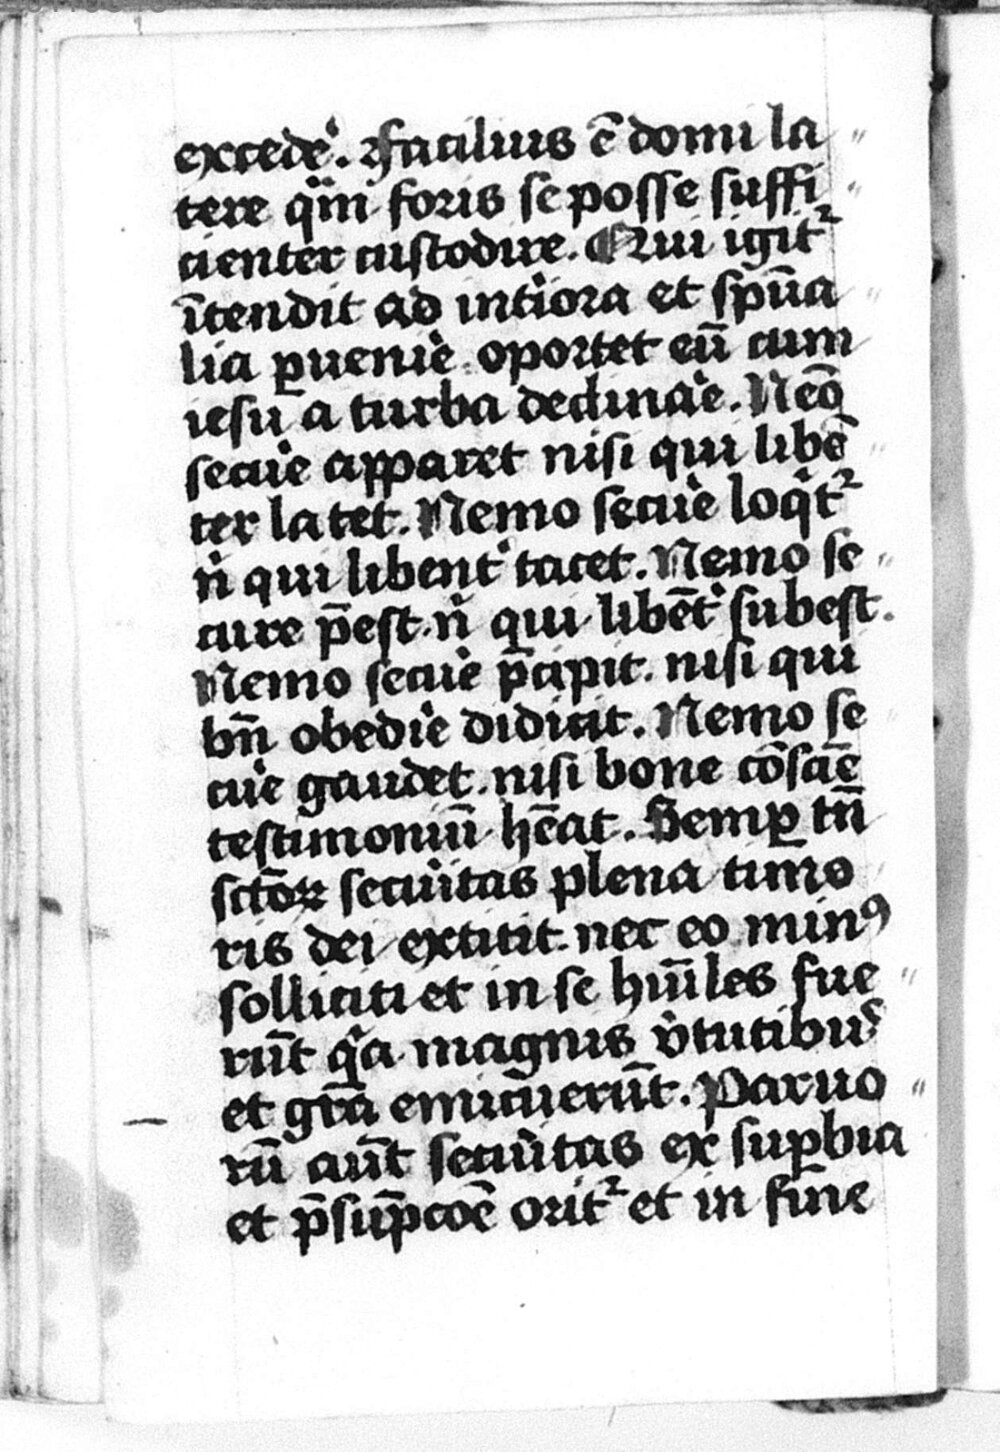 excedeˀ. Facilius ē domi la〃
tere qͣm foris se posse suffi〃
cienter custodire. Qui igitᷣ
ītendit ad intˀiora et sp̄ua〃
lia ꝑueniˀe oportet eū cum
iesu a turba declinaˀe. Neō
secuˀe apparet nisi qui libē〃
ter latet. Nemo secuˀe loqͥtᷣ
nͥ qui libentˀ tacet. Nemo se〃
cure p̄est nͥ qui libētˀ subest.
Nemo secuˀe p̄cipit. nisi qui
bn̄ obediˀe didicit. Nemo se〃
cuˀe gaudet. nisi bone cōsciē
testimoniū hēat. Semꝑ tn̄
sctōꝝ secuˀitas plena timo
ris dei extitit. nec eo minꝰ
solliciti et in se hūiles fue〃
rūt qͣa magnis vˀtutibus
et grā emicuerūt. Paruo〃
rū aūt secuˀitas ex suꝑbia
et p̄sūp̄coē oritᷣ et in fine